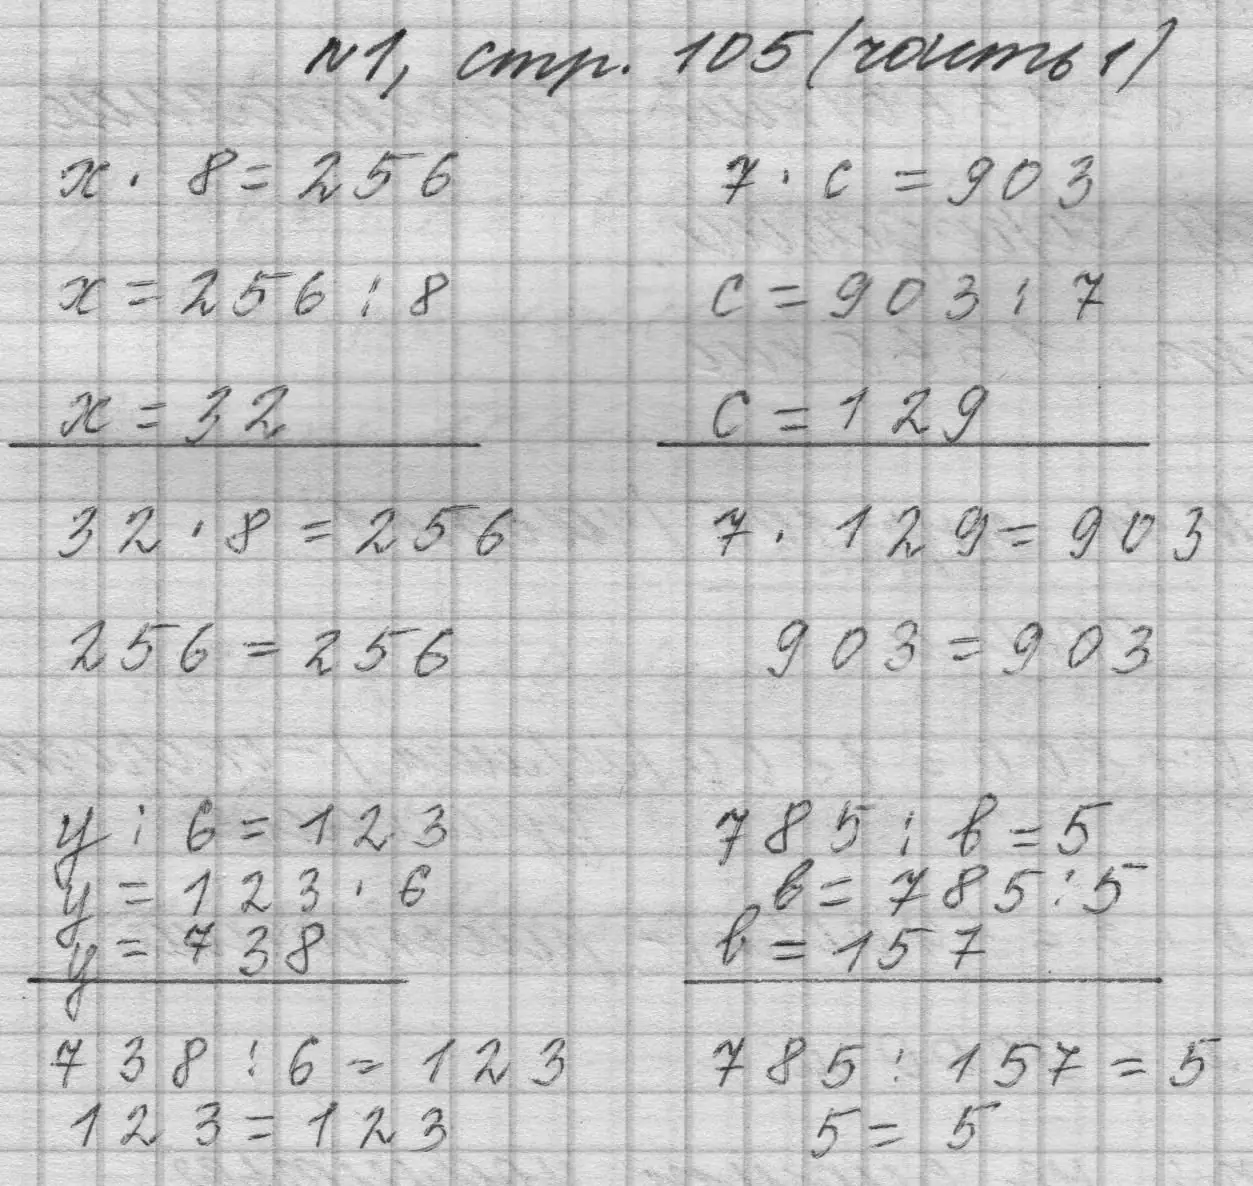 №1, стр. 105 (часть 1)
x · 8 = 256
x = 256 : 8
x = 32
32 · 8 = 256
256 = 256
7 · c = 903
c = 903 : 7
c = 129
7 · 129 = 903
903 = 903
y : 6 = 123
y = 123 · 6
y = 738
738 : 6 = 123
123 = 123
785 : b = 5
b = 785 : 5
b = 157
785 : 157 = 5
5 = 5